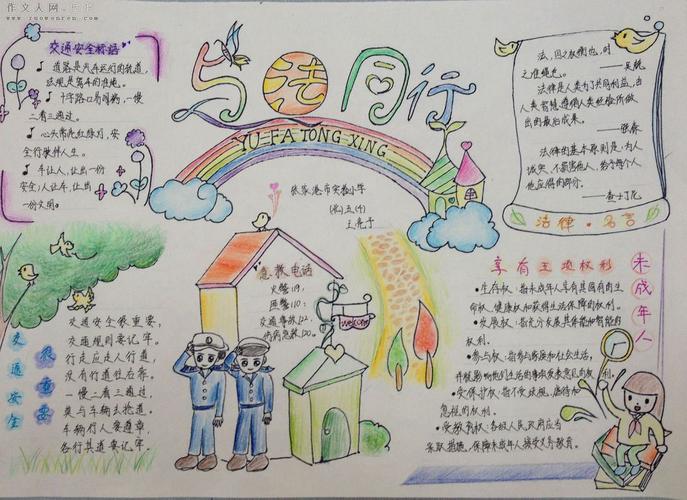 作文人网
www.zuowenren.com
与法同行
YU FA TONG XING
交通安全标语
道路是汽车运行的轨道,
法规是驾车的准绳。
十字路口有明狗,一慢
二看三通过。
心头常亮红绿灯,安
全行驶伴人生。
车让人,让出一份
安全;人让车,让出
一份文明。
张家港市实验小学
急救电话
火警119:
匪警110:
交通事故122,
伤病急救120。
welcome
法,国之权衡也,时
之准绳也。
——吴兢
法律是人类为了共同利益,由
人类智慧遵循人类经验所做
出的最后成果。
——强森
法律的基本原则是:为人
诚实,不损害他人,给予每个人
他应得的部分。
——查士丁尼
法律·名言
未成年人
享有主项权利
生存权:指未成年人享有其固有的生
命权、健康权和获得生活保障的权利。
发展权:指充分发展其体能和智能的
权利。
参与权:指参与家庭和社会生活,
并就影响他们生活的事项发表意见的权利。
受保护权:指不受歧视、虐待和
忽视的权利。
受教育权:各级人民政府应当
采取措施,保障未成年人接受义务教育。
交通安全
很重要
交通安全很重要,
交通规则要记牢。
行走应走人行道,
没有行道往右靠。
一慢二看三通过,
莫与车辆去抢道。
车辆行人要遵章,
各行其道要记牢。